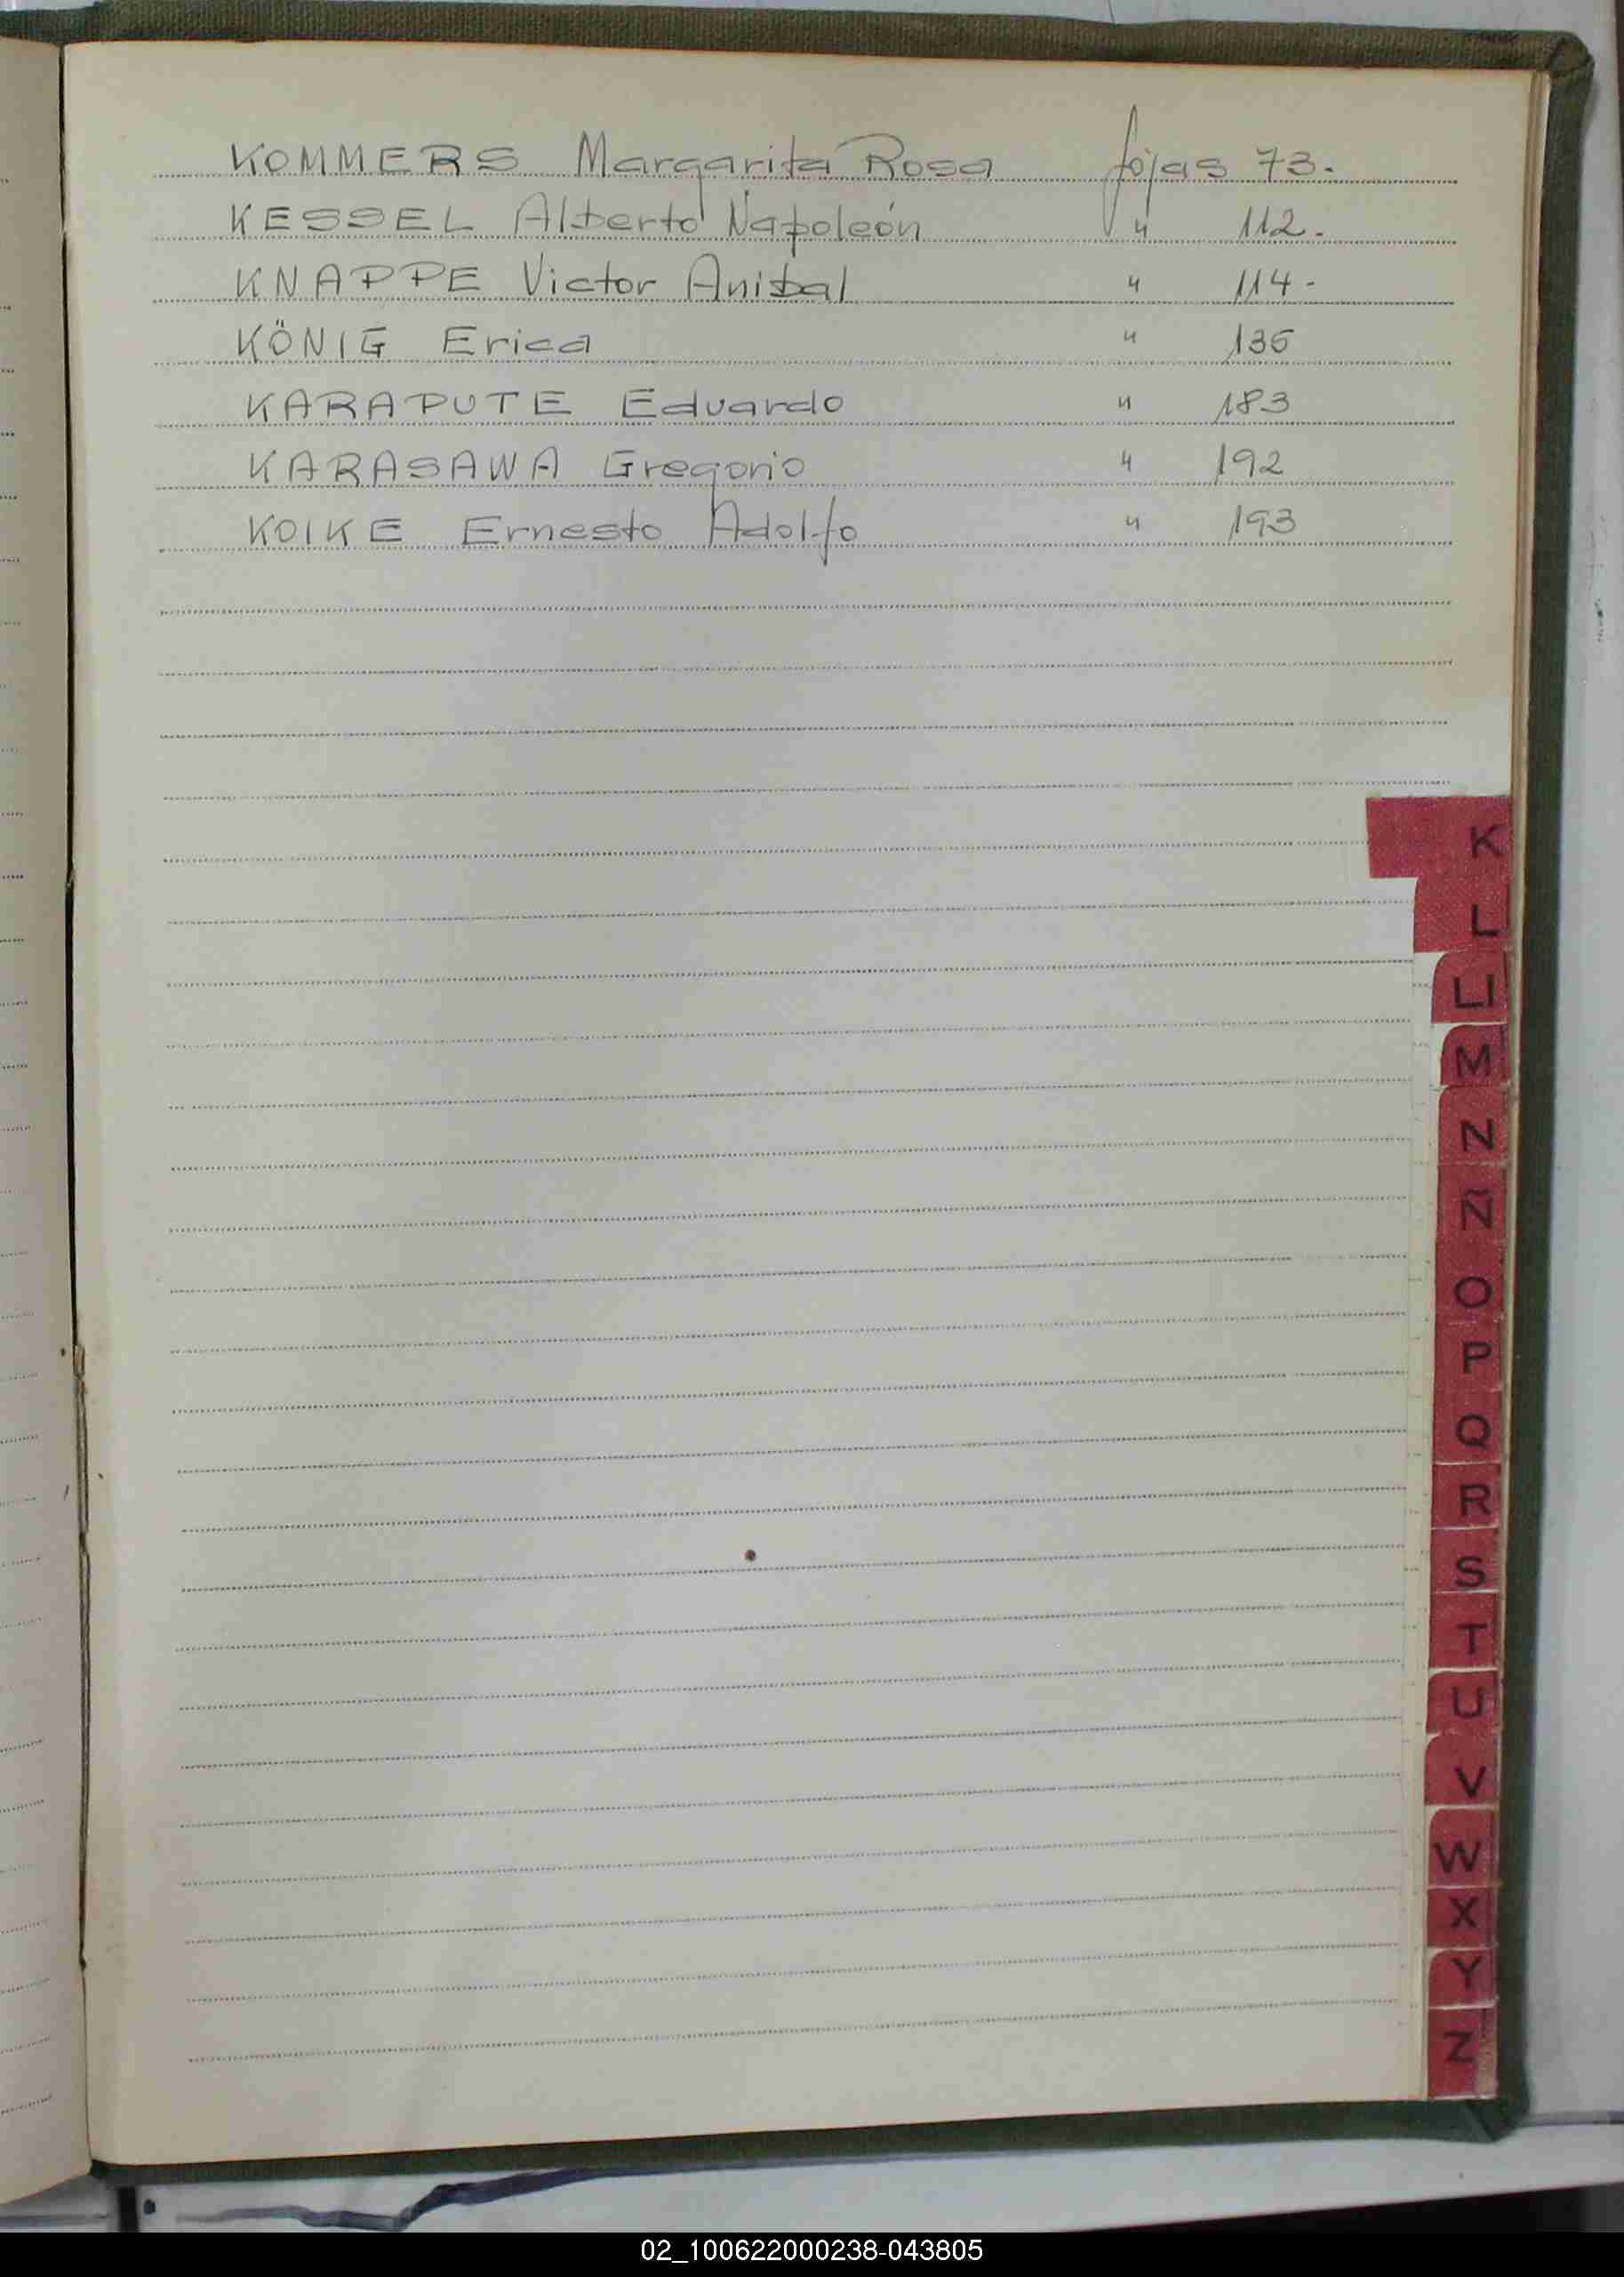 KOMMERS Margarita Rosa fojas 73.-
KESSEL Alberto Napoleón " 112.-
KNAPPE Victor Anibal " 114-
KÖNIG Erica " 136
KARAPUTE Eduardo " 183
KARASAWA Gregorio " 192
KOIKE Ernesto Adolfo " 193
K
L
Ll
M
N
Ñ
O
P
Q
R
S
T
U
V
W
X
Y
Z
02_100622000238-043805